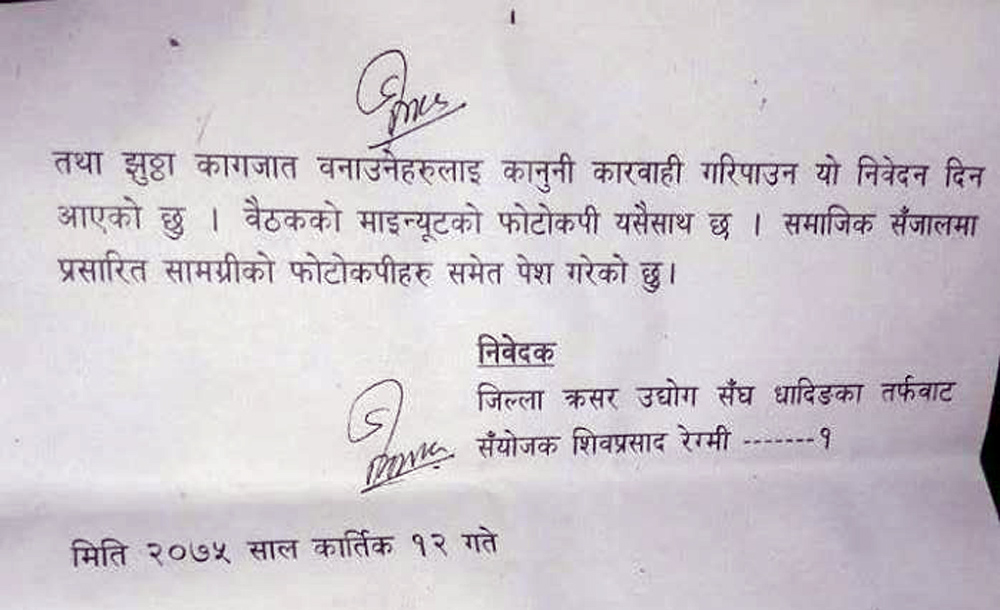 तथा झुठ्ठा कागजात वनाउनेहरुलाइ कानुनी कारवाही गरिपाउन यो निवेदन दिन
आएको छु । वैठकको माइन्यूटको फोटोकपी यसैसाथ छ । समाजिक सँजालमा
प्रसारित सामग्रीको फोटोकपीहरु समेत पेश गरेको छु।
निवेदक
जिल्ला क्रसर उद्योग सँघ धादिङका तर्फवाट
सँयोजक शिवप्रसाद रेग्मी -------१
मिति २०७५ साल कार्तिक १२ गते